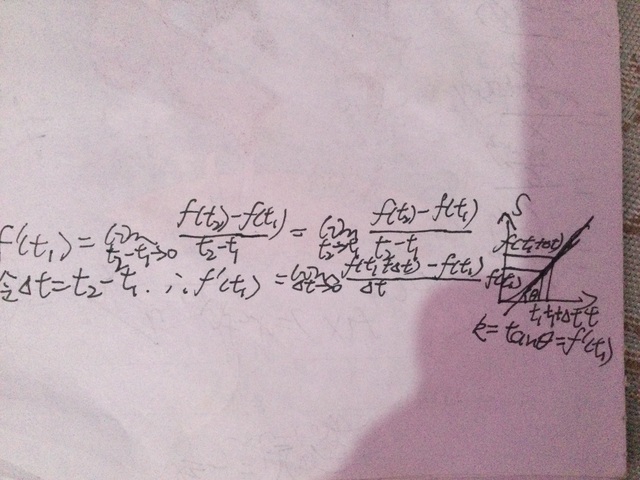 f'(t₁) = lim t₂-t₁→0 f(t₂)-f(t₁) / t₂-t₁ = lim t₂→t₁ f(t₂)-f(t₁) / t₂-t₁
令Δt=t₂-t₁. ∴f'(t₁) = lim Δt→0 f(t₁+Δt)-f(t₁) / Δt
S
f(t₁+Δt)
f(t₁)
θ
t₁ t₁+Δt t
k=tanθ=f'(t₁)